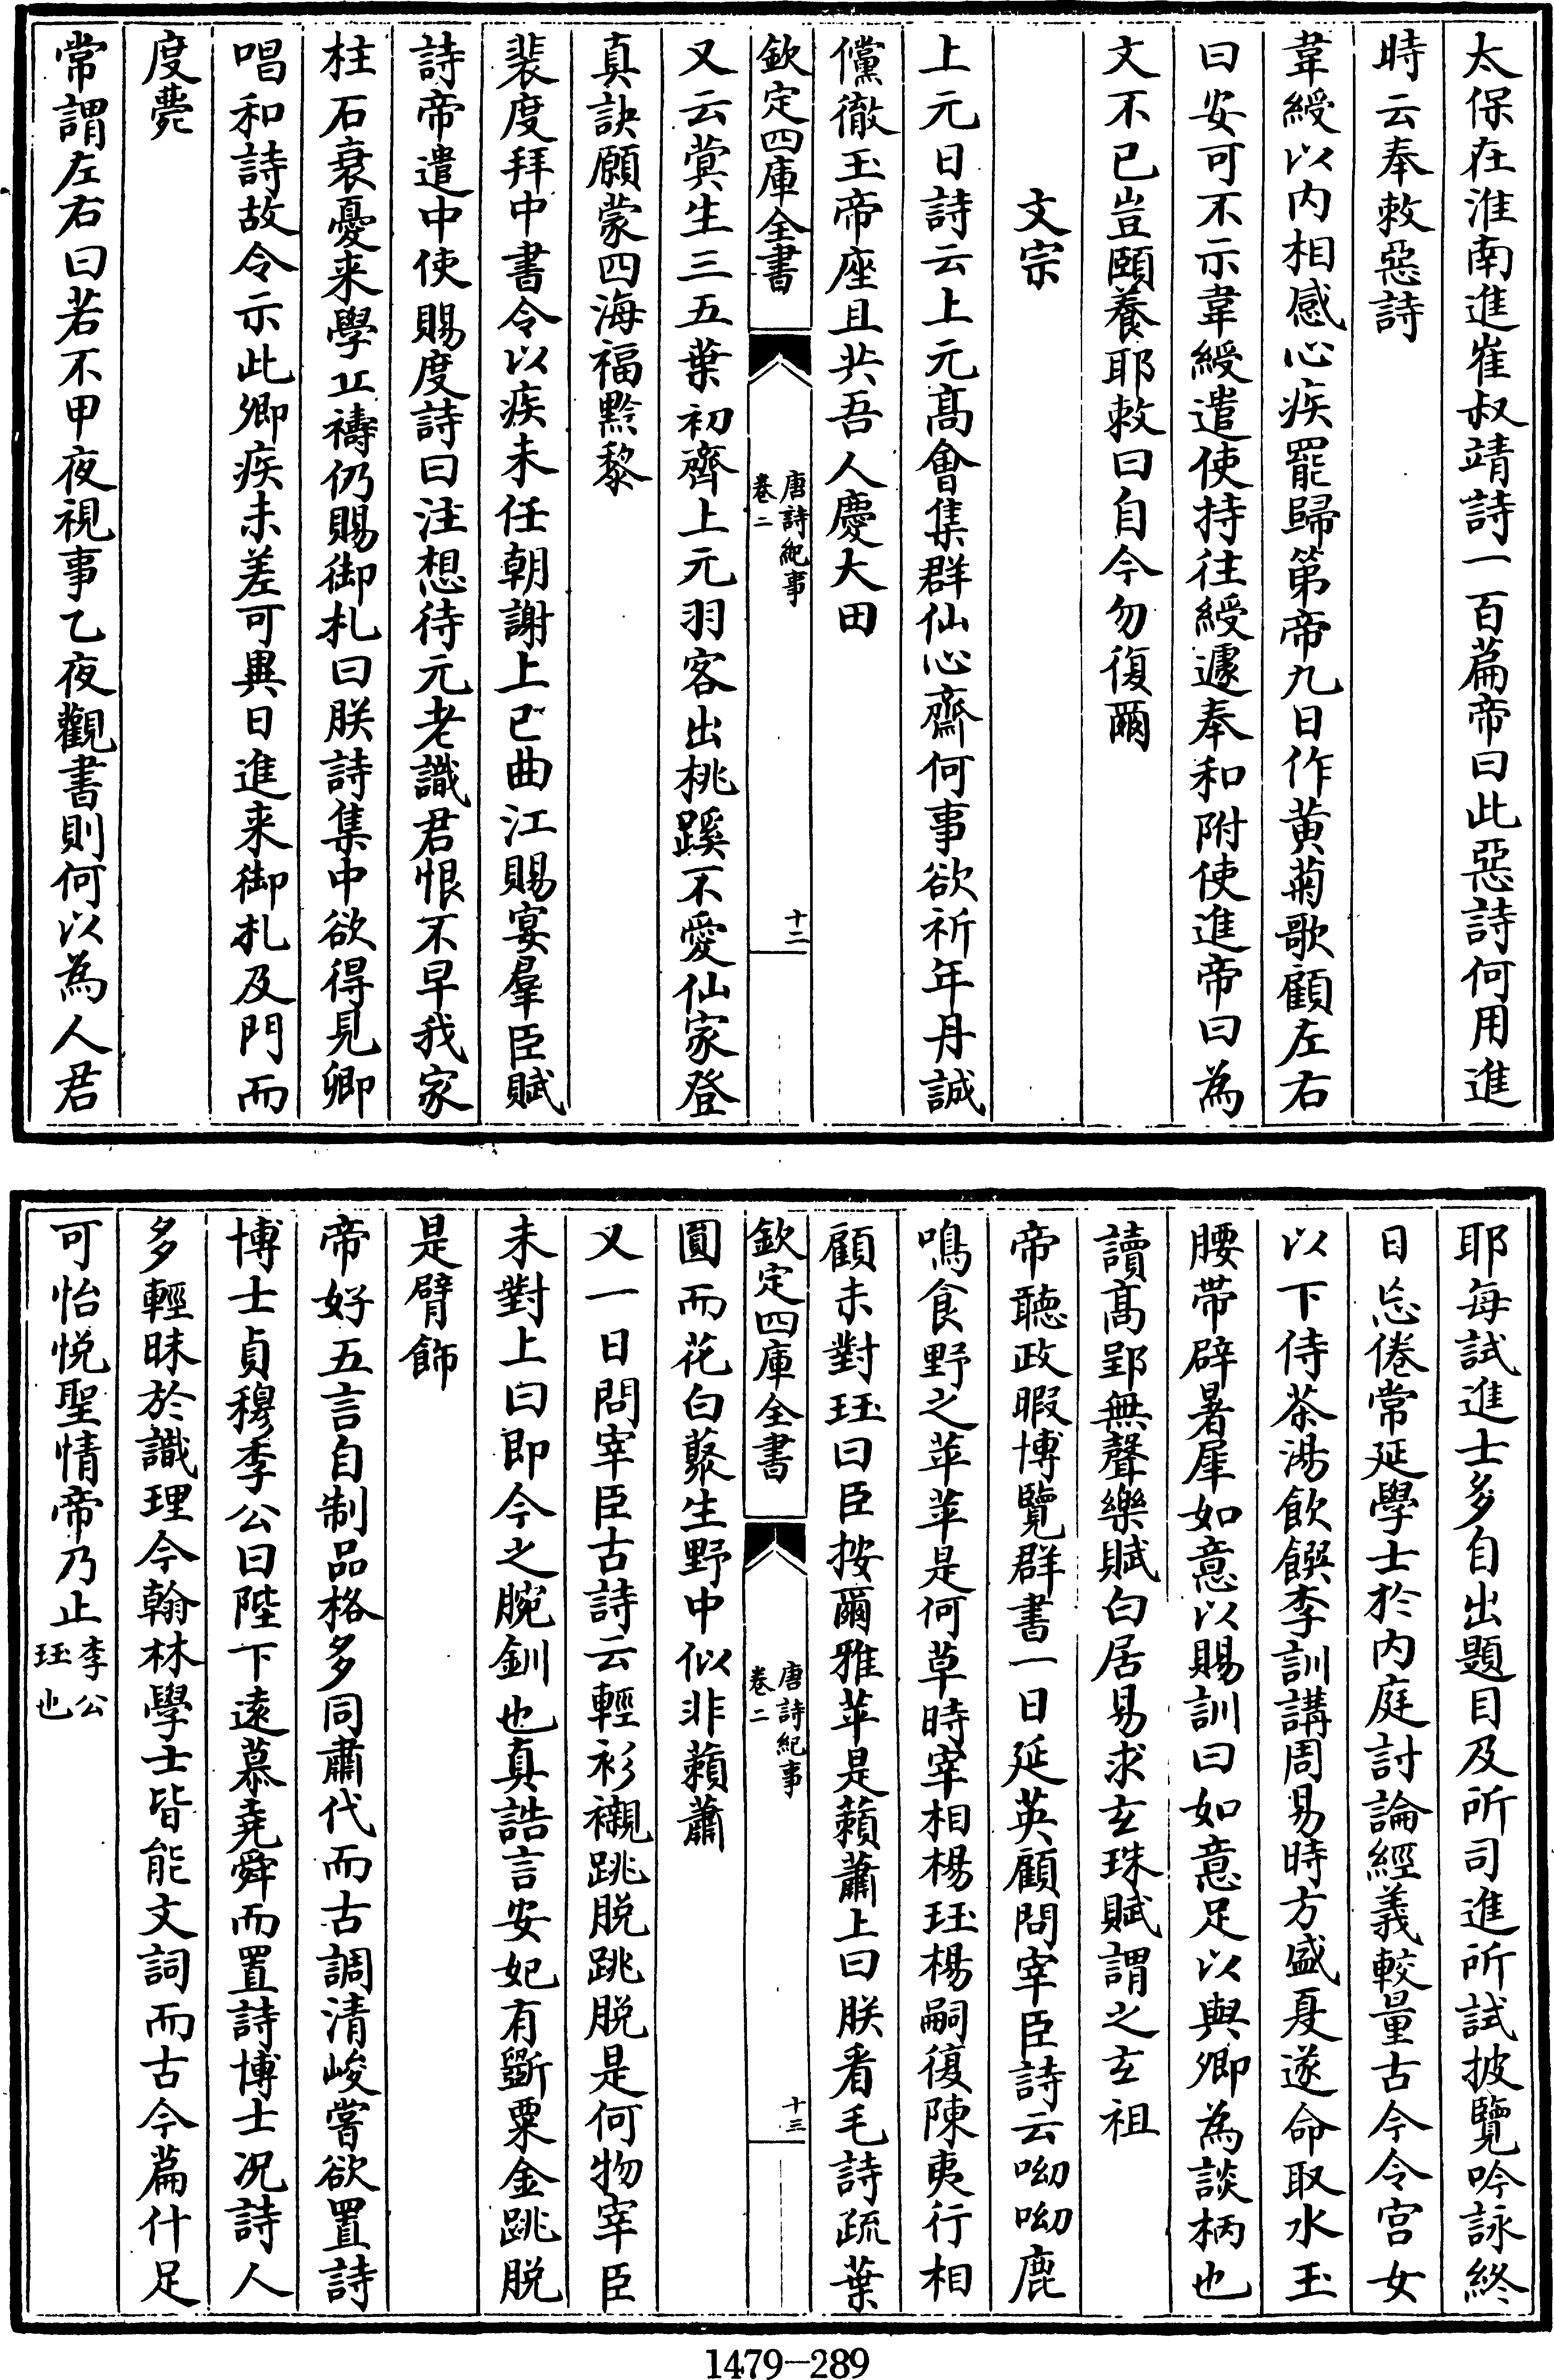 太保在淮南進崔叔靖詩一百篇帝曰此惡詩何用進
時云奉敕惡詩
韋綬以内相感心疾罷歸第帝九日作黄菊歌顧左右
曰安可不示韋綬遣使持往綬遽奉和附使進帝曰為
文不已豈頤養耶敕曰自今勿復爾
文宗
上元日詩云上元髙會集群仙心齋何事欲祈年丹誠
儻徹玉帝座且共吾人慶大田
欽定四庫全書
唐詩紀事
卷二
十二
又云蓂生三五葉初齊上元羽客出桃蹊不愛仙家登
真訣願蒙四海福黔黎
裴度拜中書令以疾未任朝謝上巳曲江賜宴羣臣賦
詩帝遣中使賜度詩曰注想待元老識君恨不早我家
柱石衰憂来學丘禱仍賜御札曰朕詩集中欲得見卿
唱和詩故令示此卿疾未差可異日進来御札及門而
度薨
常謂左右曰若不甲夜視事乙夜觀書則何以為人君
耶每試進士多自出題目及所司進所試披覽吟詠終
日忘倦常延學士於内庭討論經義較量古今令宫女
以下侍茶湯飲饌李訓講周易時方盛夏遂命取水玉
腰帶辟暑犀如意以賜訓曰如意足以與卿為談柄也
讀髙郢無聲樂賦白居易求玄珠賦謂之玄祖
帝聽政暇博覽群書一日延英顧問宰臣詩云呦呦鹿
鳴食野之苹苹是何草時宰相楊珏楊嗣復陳夷行相
顧未對珏曰臣按爾雅苹是藾蕭上曰朕看毛詩疏葉
圓而花白藂生野中似非藾蕭
欽定四庫全書
唐詩紀事
卷二
十三
又一日問宰臣古詩云輕衫襯跳脱跳脱是何物宰臣
未對上曰即今之腕釧也真誥言安妃有斵粟金跳脱
是臂飾
帝好五言自制品格多同肅代而古調清峻嘗欲置詩
博士貞穆李公曰陛下逺慕堯舜而置詩博士况詩人
多輕昧於識理今翰林學士皆能文詞而古今篇什足
可怡悦聖情帝乃止李公
珏也
1479—289